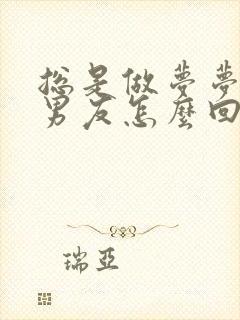 總是做夢夢
男友怎麼回
瑞亞